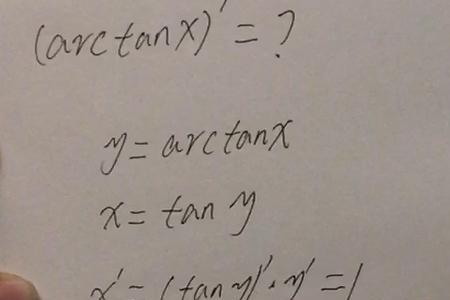 (arctanx)' = ?
y = arctanx
x = tan y
x' = (tan y)' · y' = 1